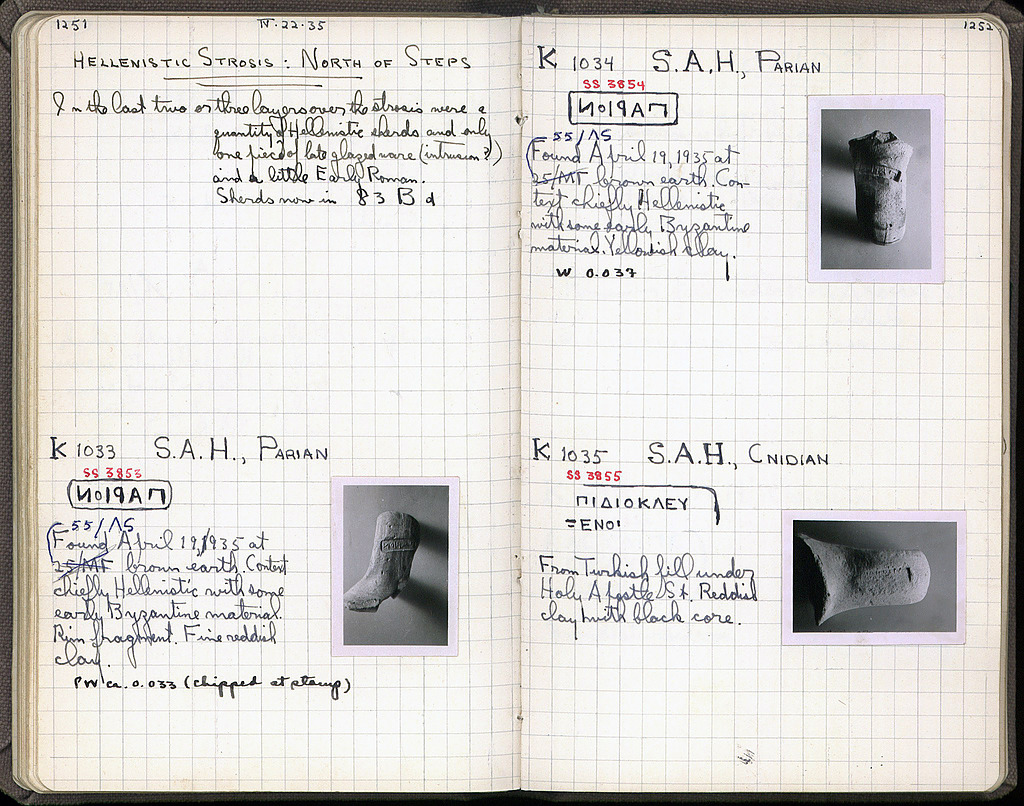 1251
IV·22·35
HELLENISTIC STROSIS: NORTH OF STEPS
In the last two or three layers over the strosis were a
quantity of Hellenistic sherds and only
one piece of late glazed ware (intrusion?)
and a little Early Roman.
Sherds now in 83 B d
K 1033 S.A.H., PARIAN
SS 3853
ΠΑΡΙΟΝ
55/ΛΣ
Found April 19, 1935 at
25/ΜΓ brown earth. Context
chiefly Hellenistic with some
early Byzantine material.
Rim fragment. Fine reddish
clay.
PW ca. 0.033 (chipped at stamp)
1252
K 1034 S.A.H., PARIAN
SS 3854
ΠΑΡΙΟΝ
55/ΛΣ
Found April 19, 1935 at
25/ΜΓ brown earth. Con-
text chiefly Hellenistic
with some early Byzantine
material. Yellowish clay.
W 0.037
K 1035 S.A.H., CNIDIAN
SS 3855
ΠΙΔΙΟΚΛΕΥ
ΞΕΝΟ
From Turkish fill under
Holy Apostles St. Reddish
clay with black core.